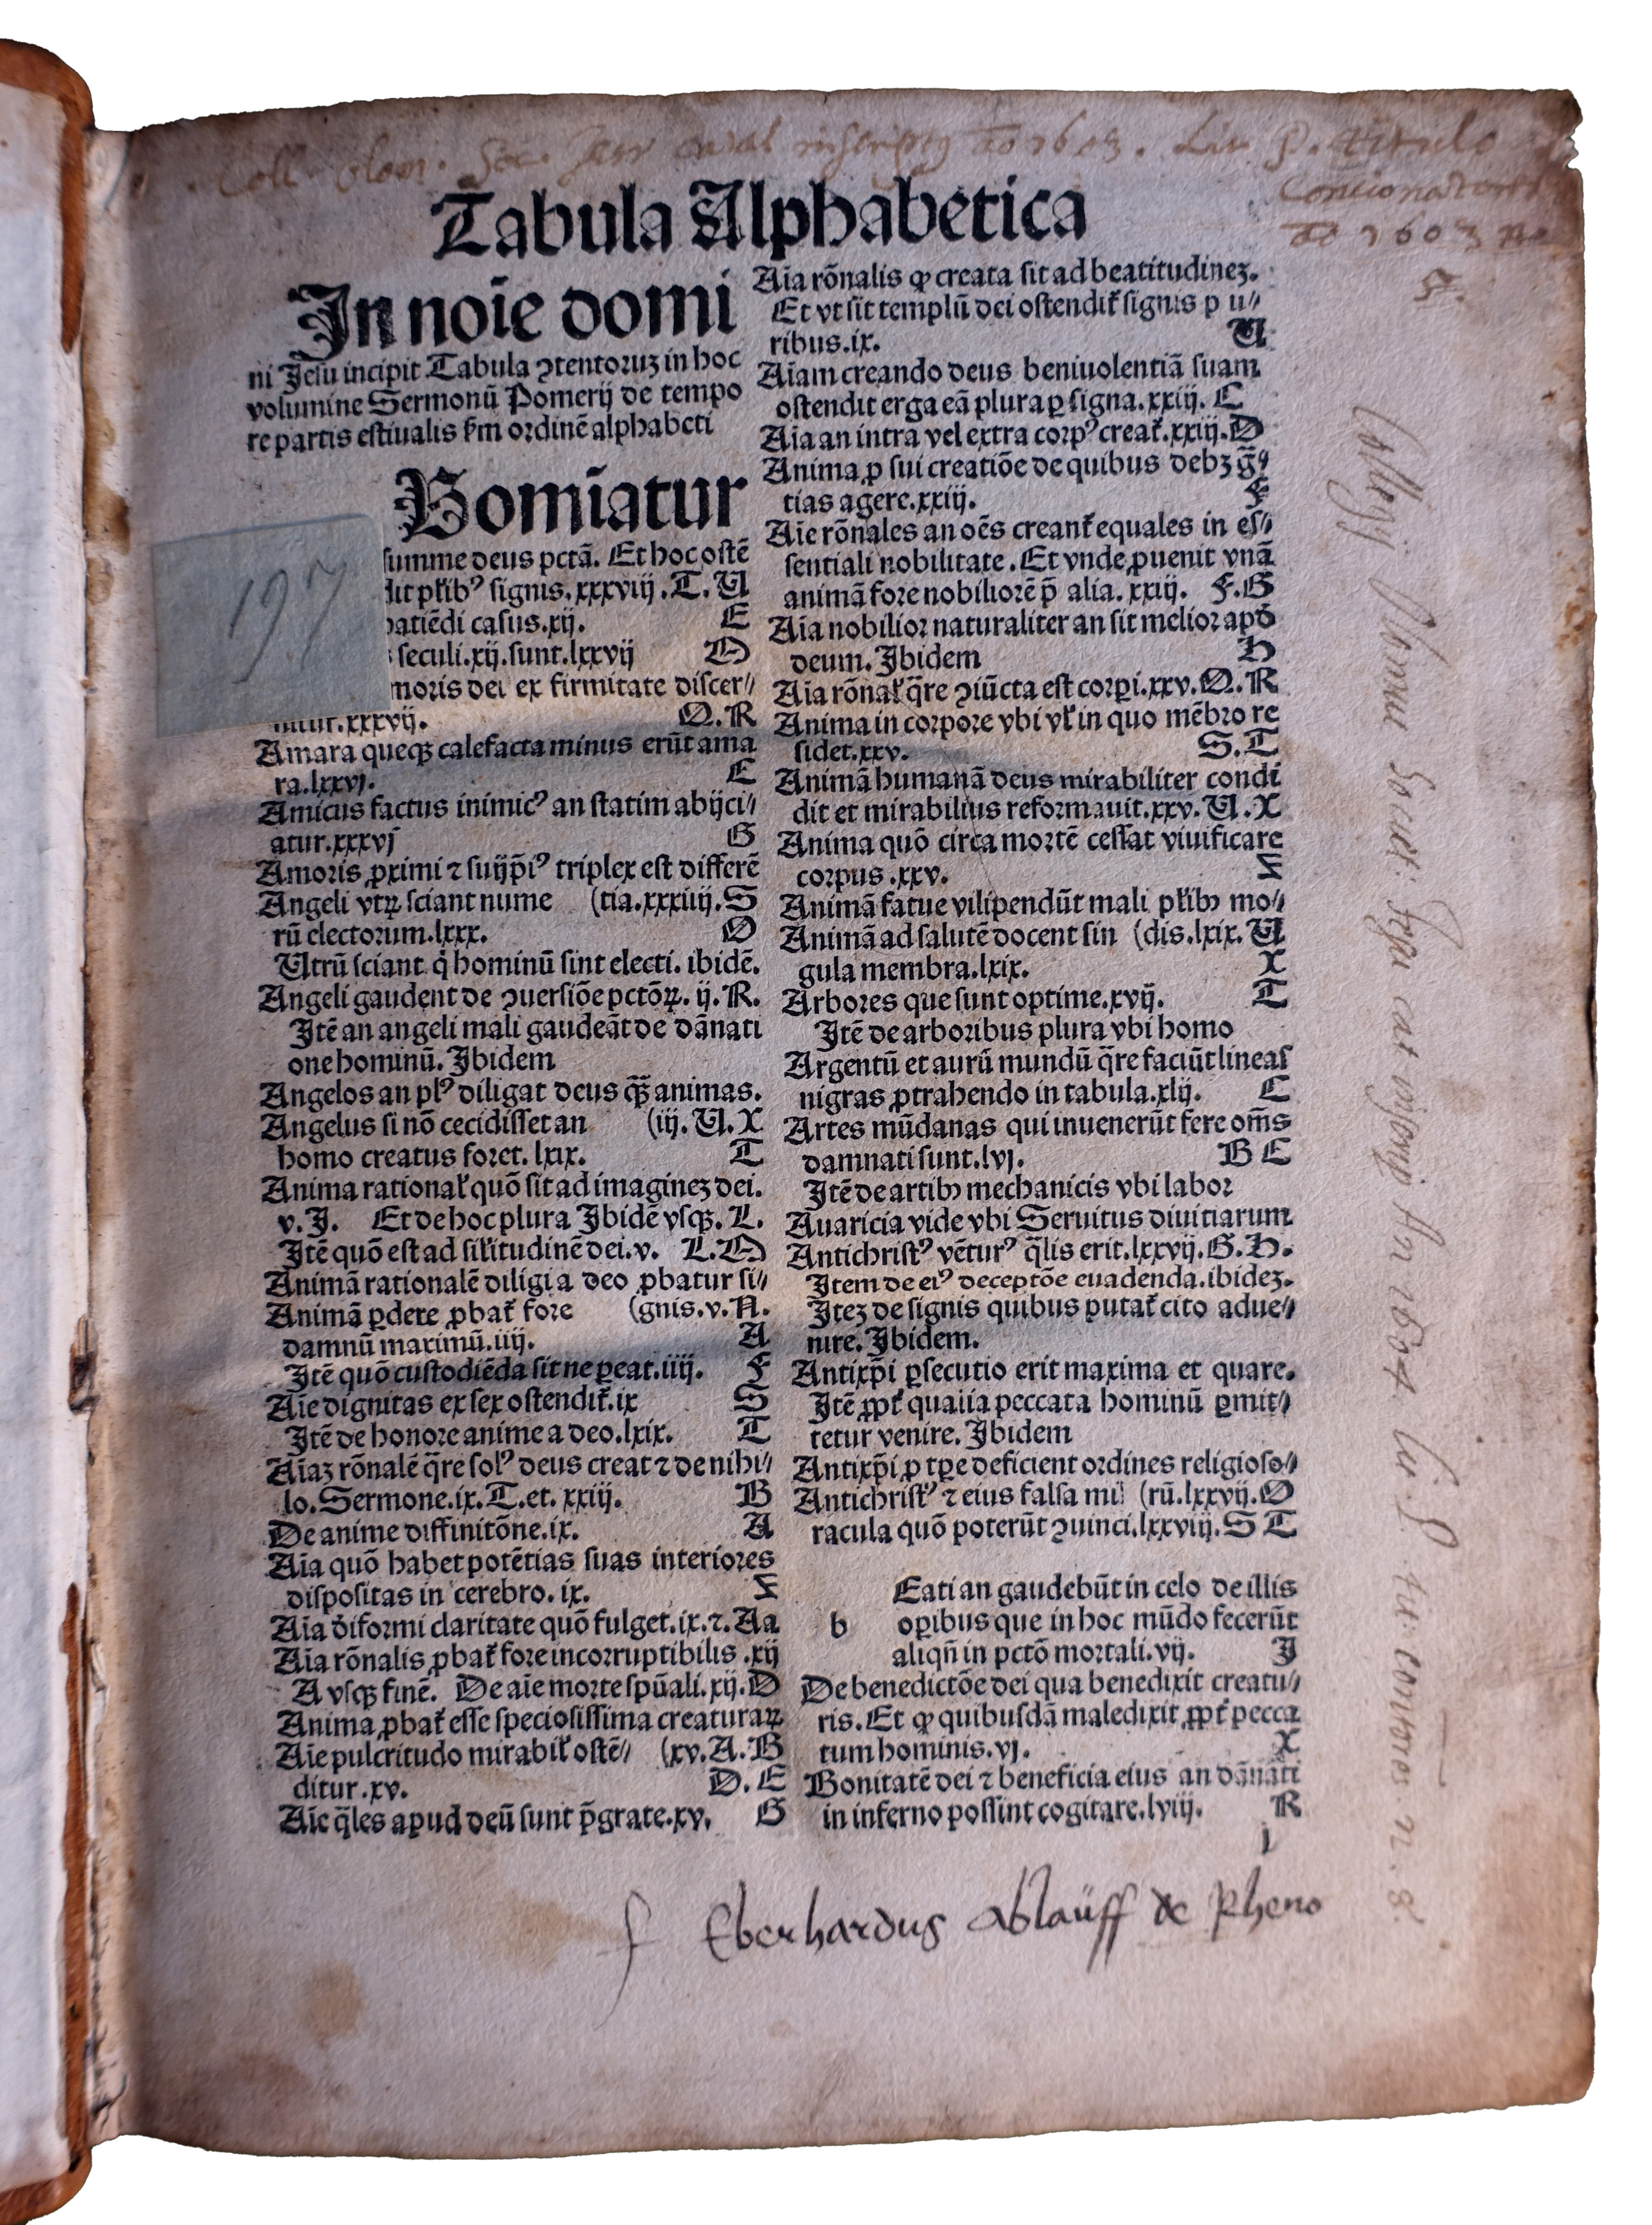 Coll. Olom. Soc. Jesu catal. inscriptus ao 1603. Lit. P. titulo
Concionatores
ao 1603 no
5.
Tabula Alphabetica
In noie̅ domi
ni Jesu incipit Tabula ꝯtentoruꝫ in hoc
volumine Sermonū Pomerij de tempo
re partis estiualis ẜm ordinē alphabeti
Bomiatur
summe deus pctā. Et hoc ostē
dit pl̃ibꝰ signis. xxxviij. T. U
patiēdi casus. xij. E
seculi. xij. sunt. lxxvij O
moris dei ex firmitate discer⸗
nitur. xxxvij. Q. R
Amara queqꝫ calefacta minus erūt ama
ra. lxxvj. E
Amicus factus inimicꝰ an statim abijci⸗
atur. xxxvj G
Amoris ꝓximi ⁊ suijp̄iꝰ triplex est differē
Angeli vtꝝ sciant nume (tia. xxxiiij. S
rū electorum. lxxx. O
Utrū sciant q̇ hominū sint electi. ibidē.
Angeli gaudent de ꝯuersiōe pctōꝝ. ij. R.
Jtē an angeli mali gaudeāt de dānati
one hominū. Jbidem
Angelos an plꝰ diligat deus q̄ꝫ animas.
Angelus si nō cecidisset an (iij. U. X
homo creatus foret. lxix. T
Anima rational̃ quō sit ad imagineꝫ dei.
v. J. Et de hoc plura Jbidē vsqꝫ. L.
Jtē quō est ad sil̃itudinē dei. v. L. O
Animā rationalē diligi a deo ꝓbatur si⸗
Animā ꝑdere ꝓbat̃ fore (gnis. v. N.
damnū maximū. iiij. A
Jtē quō custodiēda sit ne ꝑeat. iiij. F
Aie̅ dignitas ex sex ostendit̃. ix S
Jtē de honore anime a deo. lxix. T
Aia̅ꝫ rōnalē q̄re solꝰ deus creat ⁊ de nihi⸗
lo. Sermone. ix. T. et. xxiij. B
De anime diffinitōne. ix. A
Aia̅ quō habet potētias suas interiores
dispositas in cerebro. ix. Z
Aia̅ dı̄formi claritate quō fulget. ix. ⁊. Aa
Aia̅ rōnalis ꝓbat̃ fore incorruptibilis. xij
A vsqꝫ finē. De aie̅ morte spūali. xij. D
Anima ꝓbat̃ esse speciosissima creaturaꝝ
Aie̅ pulcritudo mirabil̃ ostē⸗ (xv. A. B
ditur. xv. D. E
Aie̅ q̄les apud deū sunt p̄grate. xv. G
Aia̅ rōnalis ꝙ creata sit ad beatitudineꝫ.
Et vt sit templū dei ostendit̃ signis p u⸗
ribus. ix. U
Aia̅m creando deus beniuolentiā suam
ostendit erga eā plura ꝑ signa. xxiij. C
Aia̅ an intra vel extra corpꝰ creat̃. xxiij. D
Anima ꝓ sui creatiōe de quibus debꝫ gr̄
tias agere. xxiij. F
Aie̅ rōnales an oēs creant̃ equales in es⸗
sentiali nobilitate. Et vnde ꝓuenit vnā
animā fore nobiliorē p̄ alia. xxiij. F. G
Aia̅ nobilior naturaliter an sit melior apd̄
deum. Jbidem H
Aia̅ rōnal̃ q̄re ꝯiūcta est corpi. xxv. Q. R
Anima in corpore vbi vl̃ in quo mēbro re
sidet. xxv. S. T
Animā humanā deus mirabiliter condi
dit et mirabilius reformauit. xxv. U. X
Anima quō circa mortē cessat viuificare
corpus. xxv. Z
Animā fatue vilipendūt mali pl̃ibꝫ mo⸗
Animā ad salutē docent sin (dis. lxix. U
gula membra. lxix. X
Arbores que sunt optime. xvij. T
Jtē de arboribus plura vbi homo
Argentū et aurū mundū q̄re faciūt lineas
nigras ꝓtrahendo in tabula. xlij. C
Artes mūdanas qui inuenerūt fere om̄s
damnati sunt. lvj. B E
Jtē de artibꝫ mechanicis vbi labor
Auaricia vide vbi Seruitus diuitiarum
Antichristꝰ vēturꝰ q̄lis erit. lxxvij. G. H.
Jtem de eiꝰ deceptōe euadenda. ibideꝫ.
Jteꝫ de signis quibus putat̃ cito adue⸗
nire. Jbidem.
Antixp̄i ꝑsecutio erit maxima et quare.
Jtē ꝓpt̃ qualia peccata hominū ꝑmit⸗
tetur venire. Jbidem
Antixp̄i ꝓ tꝑe deficient ordines religioso⸗
Antichristꝰ ⁊ eius falsa mi (rū. lxxvij. O
racula quō poterūt ꝯuinci. lxxviij. S T
Eati an gaudebūt in celo de illis
b oꝑibus que in hoc mūdo fecerūt
aliqn̄ in pctō mortali. vij. J
De benedictōe dei qua benedixit creatu⸗
ris. Et ꝙ quibusdā maledixit ꝓpt̃ pecca
tum hominis. vj. X
Bonitatē dei ⁊ beneficia eius an dānati
in inferno possint cogitare. lviij. R
j
f Eberhardus Ablaüff de Rheno
Collegij Societ: Jesu cat inscrip An 1604 Lit. P. tit: Conciones. n. 8
197